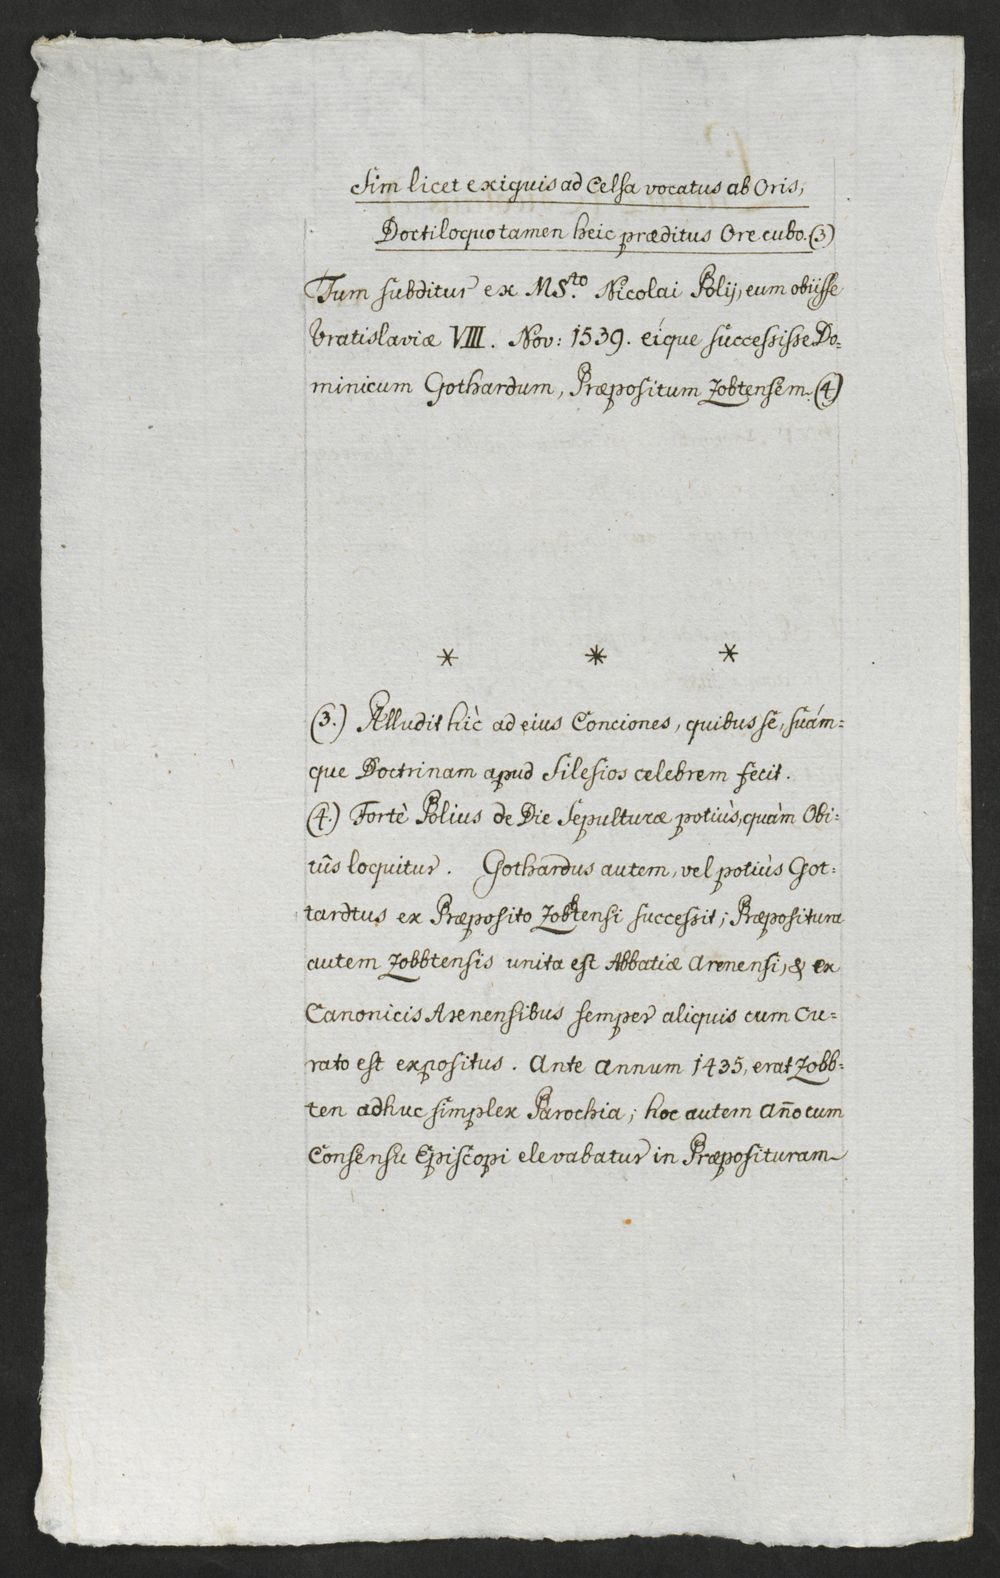 Sim licet exiguis ad Celsa vocatus ab Oris,
Doctiloquo tamen heic præditus Ore cubo. (3)
Tum subditur ex MS.to Nicolai Polij, eum obiisse
Vratislaviæ VIII. Nov: 1539. eíque successisse Do=
minicum Gothardum, Præpositum Zobtensem. (4)
* * *
(3.) Alludit hìc ad eius Conciones, quibus se, suám=
que Doctrinam apud Silesios celebrem fecit.
(4.) Fortè Polius de Die Sepulturæ potiùs, quàm Obi=
tûs loquitur. Gothardus autem, vel potiùs Got=
tardtus ex Præposito Zobtensi successit; Præpositura
autem Zobbtensis unita est Abbatiæ Arenensi, & ex
Canonicis Arenensibus semper aliquis cum Cu=
rato est expositus. Ante Annum 1435, erat Zobb=
ten adhuc simplex Parochia; hoc autem Año cum
Consensu Episcopi elevabatur in Præposituram